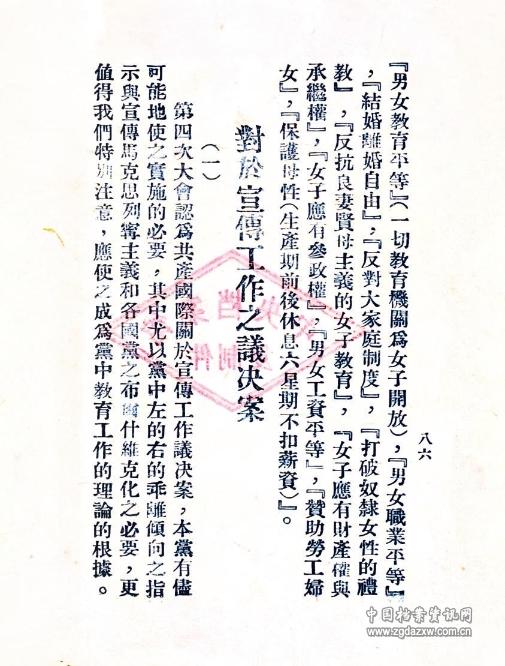 八六
『男女教育平等』(一切教育機關爲女子開放),『男女職業平等』
,『結婚離婚自由』,『反對大家庭制度』,『打破奴隸女性的禮
教』,『反抗良妻賢母主義的女子教育』,『女子應有財產權與
承繼權』,『女子應有參政權』,『男女工資平等』,『贊助勞工婦
女』,『保護母性(生產期前後休息六星期不扣薪資)』。
對於宣傳工作之議决案
(一)
第四次大會認爲共產國際關於宣傳工作議决案,本黨有儘
可能地使之實施的必要,其中尤以黨中左的右的乖離傾向之指
示與宣傳馬克思列寧主義和各國黨之布爾什維克化之必要,更
值得我們特別注意,應使之成爲黨中教育工作的理論的根據。
中国档案资讯网
www.zgdazxw.com.cn